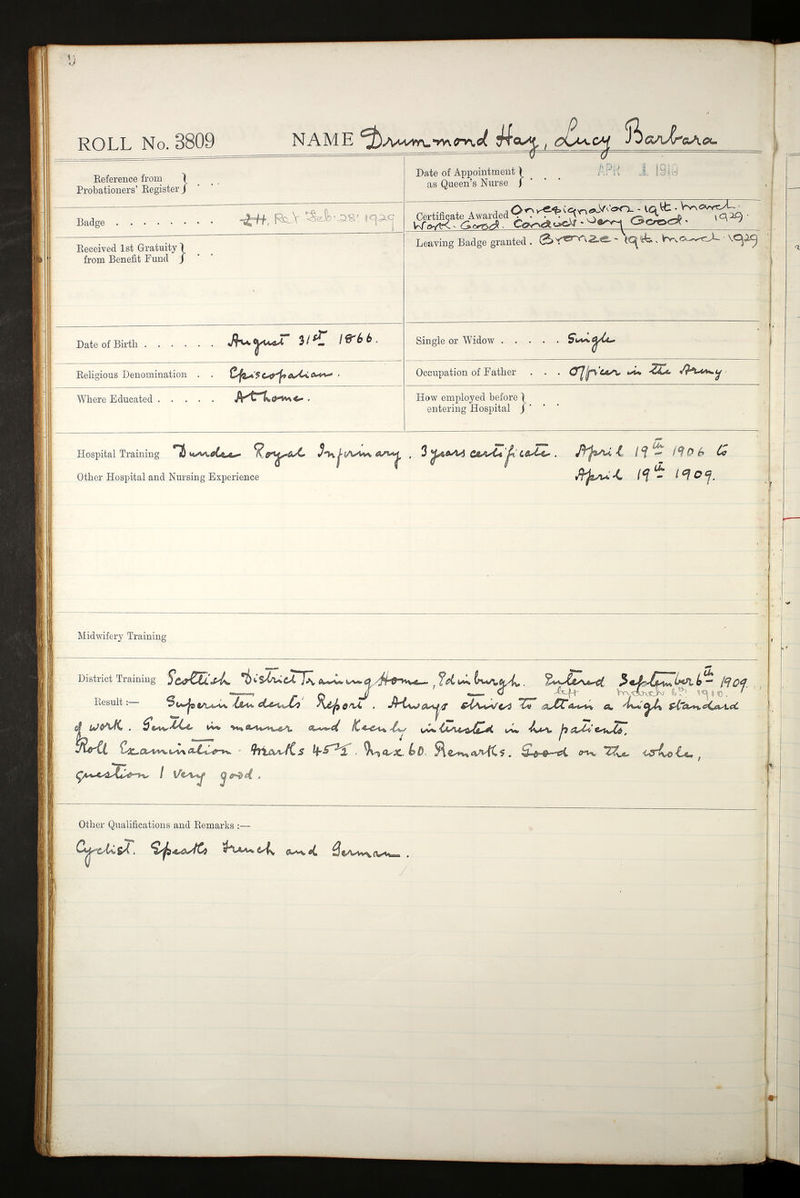 ROLL No. 3809 NAME Drummond Hay, Lucy Barbara
Reference from Probationers' Register
Date of Appointment as Queen's Nurse APR 1 1910
Badge 28' 1929
Certificate Awarded On resignation - 19th March 1929.
Work - Good. Conduct - Very Good.
Received 1st Gratuity from Benefit Fund
Leaving Badge granted. Bronze - 19th. March 1929
Date of Birth August 31st 1866.
Single or Widow Single
Religious Denomination Episcopalian.
Occupation of Father Officer in the Army
Where Educated At home.
How employed before entering Hospital
Hospital Training Dundee Royal Infirmary. 3 years certificate. April 19th 1906 to
Other Hospital and Nursing Experience April 19th 1909.
Midwifery Training
District Training Scottish District Training Home, Edinburgh. Entered September 6th 1909.
Left March 6th 1910.
Result:— Superintendent's Report. Always strives to attain a high standard
of work. Gentle in manner and keenly interested in her patients.
Roll Examination. Marks 45½. Max. 60. Remarks. Good on the whole,
question 1 very good.
Other Qualifications and Remarks:—
Cyclist. Speaks French and German.